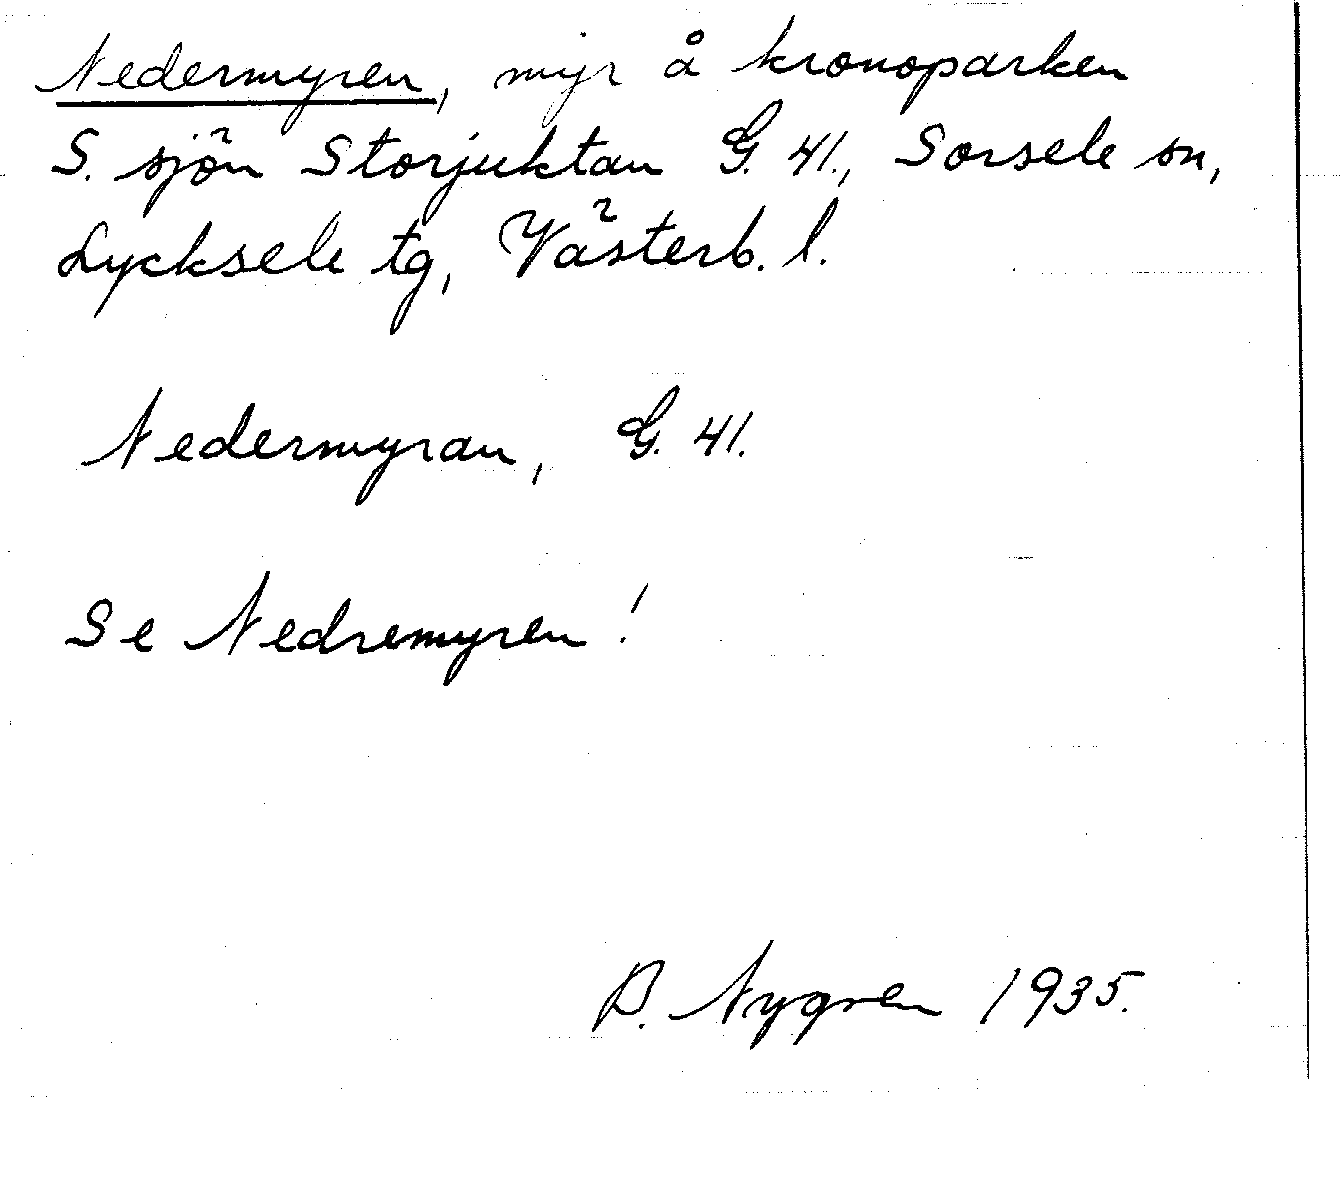 Nedermyren, myr å kronoparken
S. sjön Storjuktan G. 41., Sorsele sn,
Lycksele tg, Västerb. l.
Nedermyran, G. 41.
Se Nedremyren!
B. Nygren 1935.